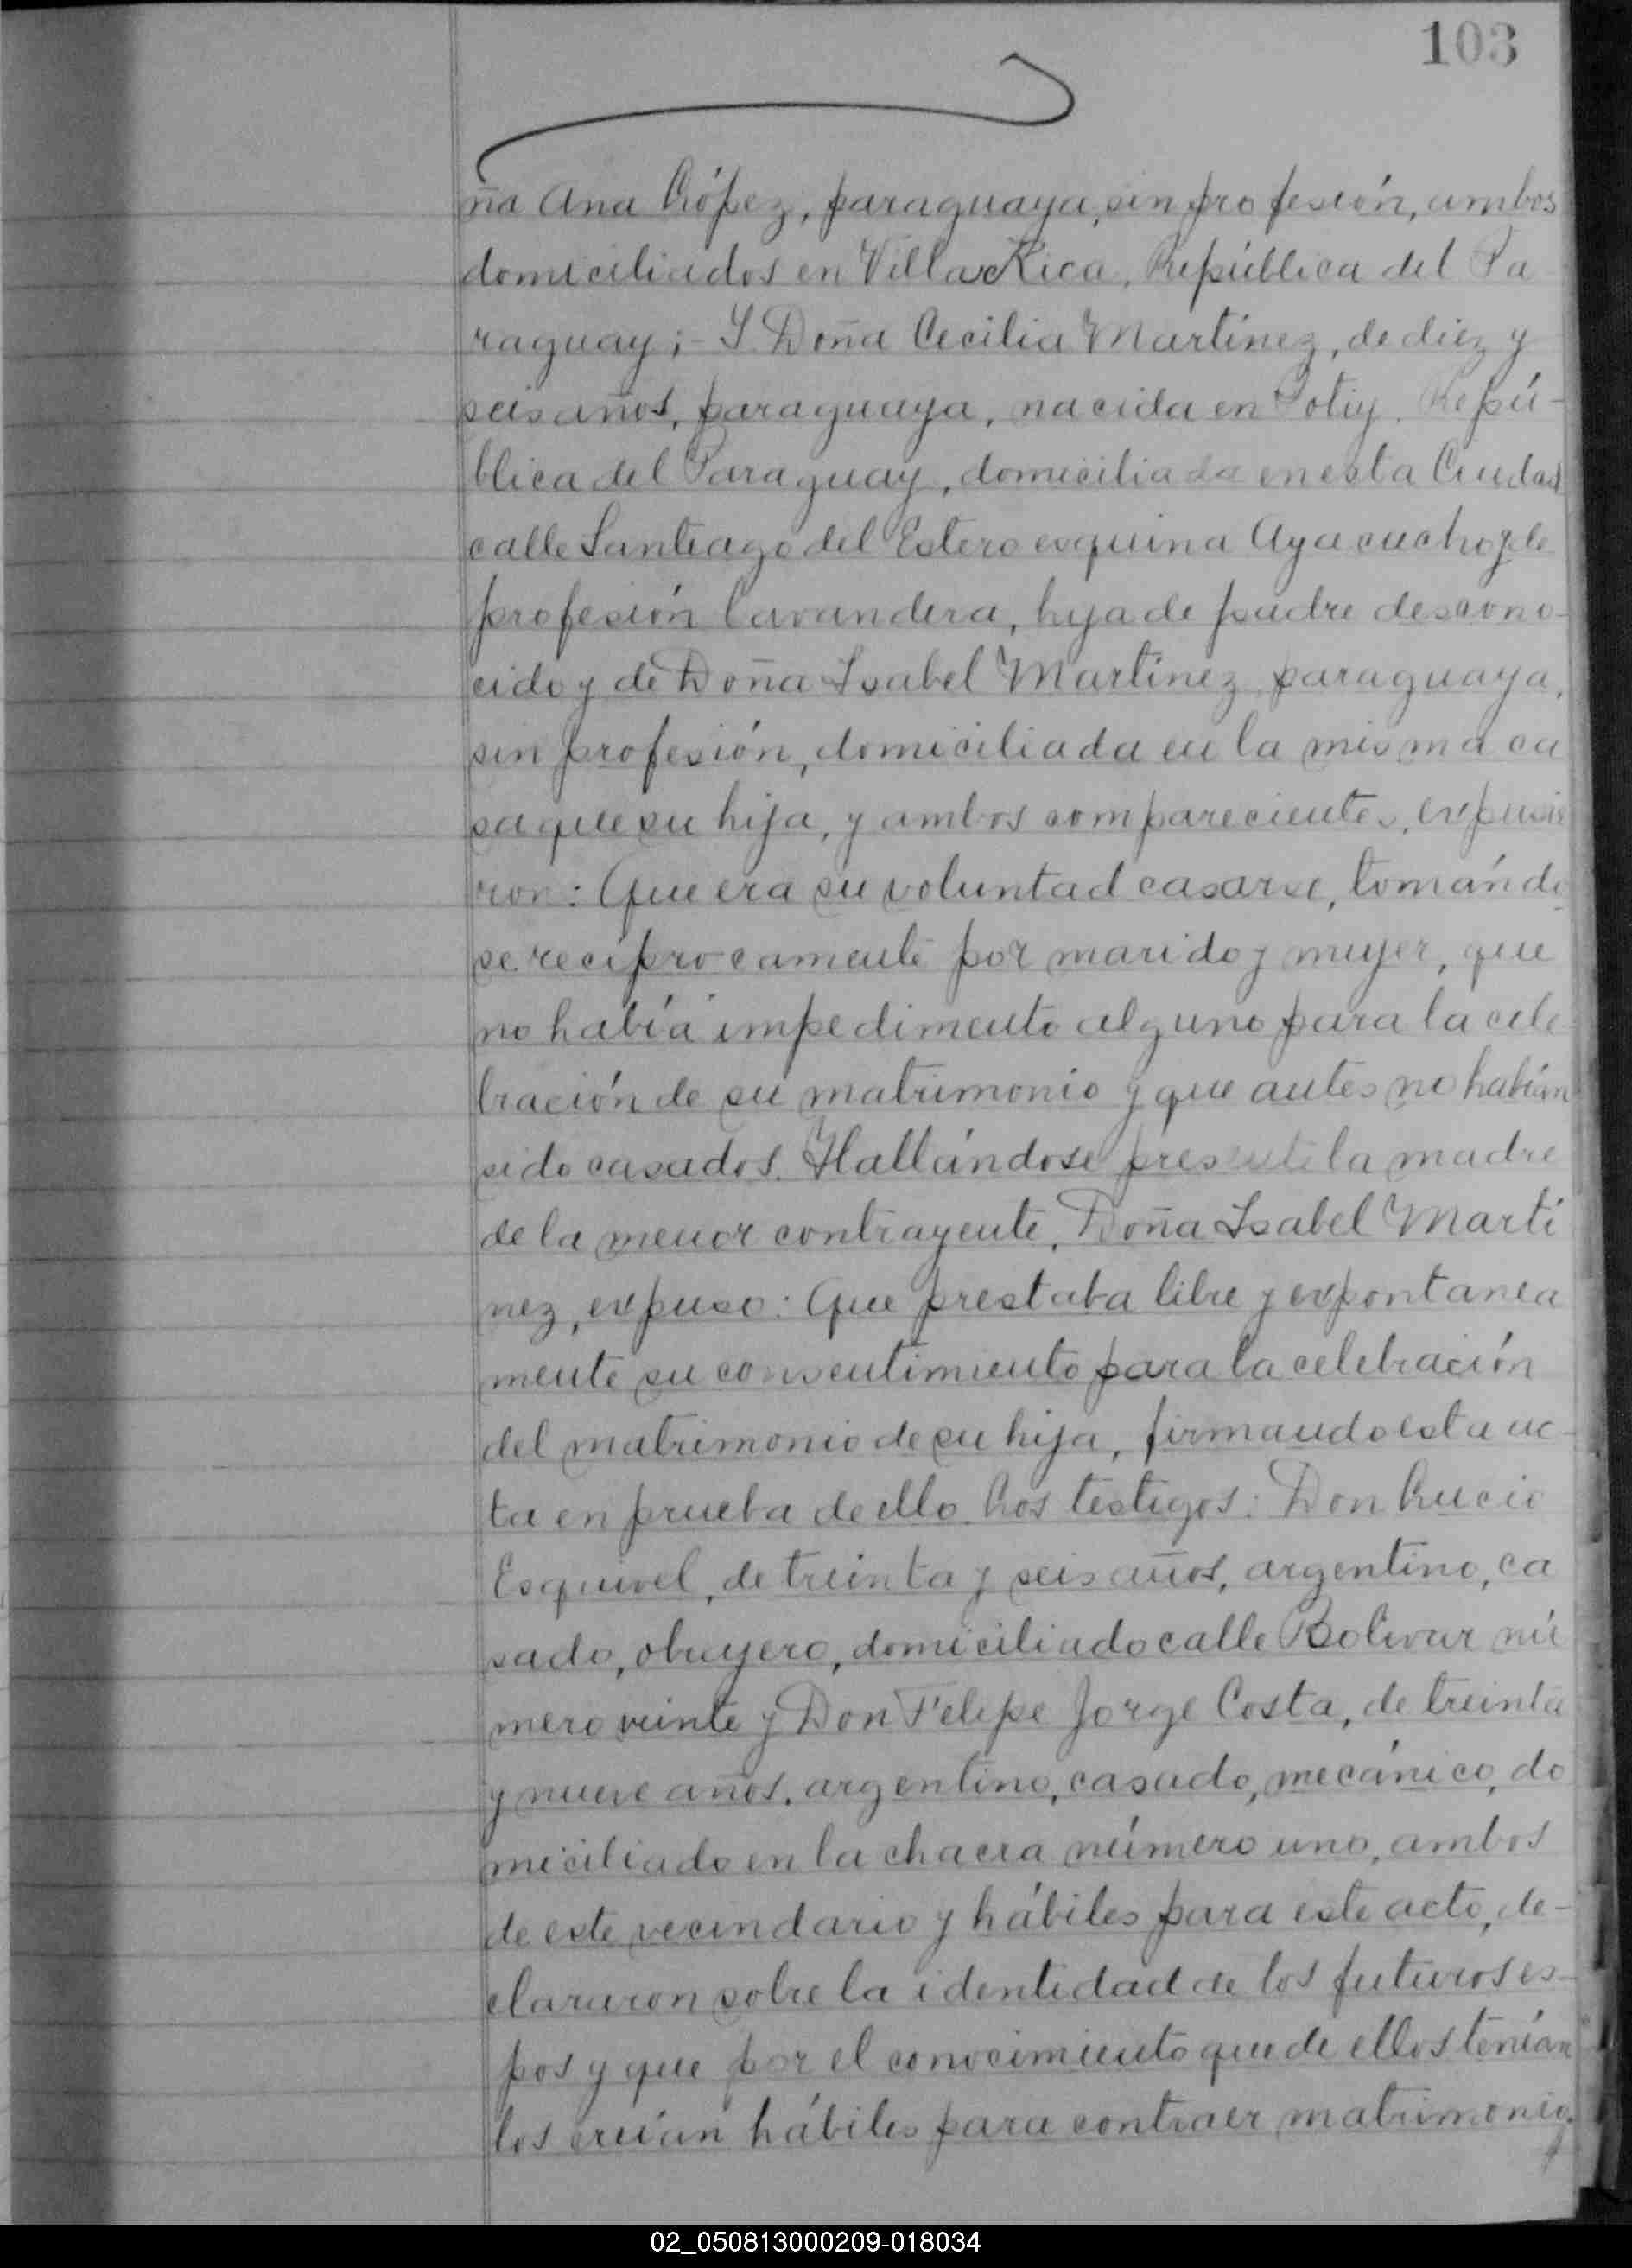 103
ña Ana López, paraguaya, sin profesión, ambos
domiciliados en Villa Rica, República del Pa
raguay; - Y Doña Cecilia Martínez, de diez y
seis años, paraguaya, nacida en Potiy. Repú-
blica del Paraguay, domiciliada en esta Ciudad
calle Santiago del Estero esquina Ayacucho, de
profesión lavandera, hija de padre descono-
cido y de Doña Isabel Martínez paraguaya,
sin profesión, domiciliada en la misma ca
sa que su hija, y ambos comparecientes, expusie
ron: Que era su voluntad casarse, tomándo
se recíprocamente por marido y mujer, que
no había impedimento alguno para la cele
bración de su matrimonio y que antes no habían
sido casados. Hallándose presente la madre
de la menor contrayente, Doña Isabel Martí
nez, expuso: Que prestaba libre y expontanea
mente su consentimiento para la celebración
del matrimonio de su hija, firmando esta ac-
ta en prueba de ello. Los testigos: Don Lucio
Esquivel, de treinta y seis años, argentino, ca
sado, obrajero, domiciliado calle Bolivar nú
mero veinte y Don Felipe Jorge Costa, de treinta
y nueve años, argentino, casado, mecánico, do
miciliado en la chacra número uno, ambos
de este vecindario y hábiles para este acto, de-
clararon sobre la identidad de los futuros es-
pos y que por el conocimiento que de ellos tenían
los creían hábiles para contraer matrimonio.
02_050813000209-018034